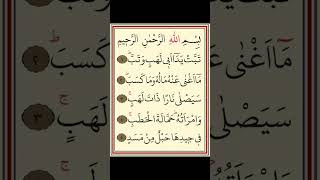 بِسْمِ اللّٰهِ الرَّحْمٰنِ الرَّحِيمِ
تَبَّتْ يَدَٓا اَبِي لَهَبٍ وَتَبَّ ﴿١﴾
مَٓا اَغْنٰى عَنْهُ مَالُهُ وَمَا كَسَبَ ﴿٢﴾
سَيَصْلٰى نَارًا ذَاتَ لَهَبٍ ﴿٣﴾
وَامْرَاَتُهُ حَمَّالَةَ الْحَطَبِ ﴿٤﴾
فِي جِيدِهَا حَبْلٌ مِنْ مَسَدٍ ﴿٥﴾